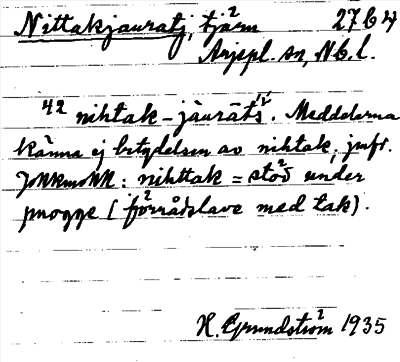 Nittakjauratj, tjärn 27 C 4
Arjepl. sn, Nb. l.
42 nihtak-jàurāts´. Meddelarna
känna ej betydelsen av nihtak, jmfr.
Jokkmokk: nihttak = stöd under
puogge (förrådslave med tak).
H. Grundström 1935